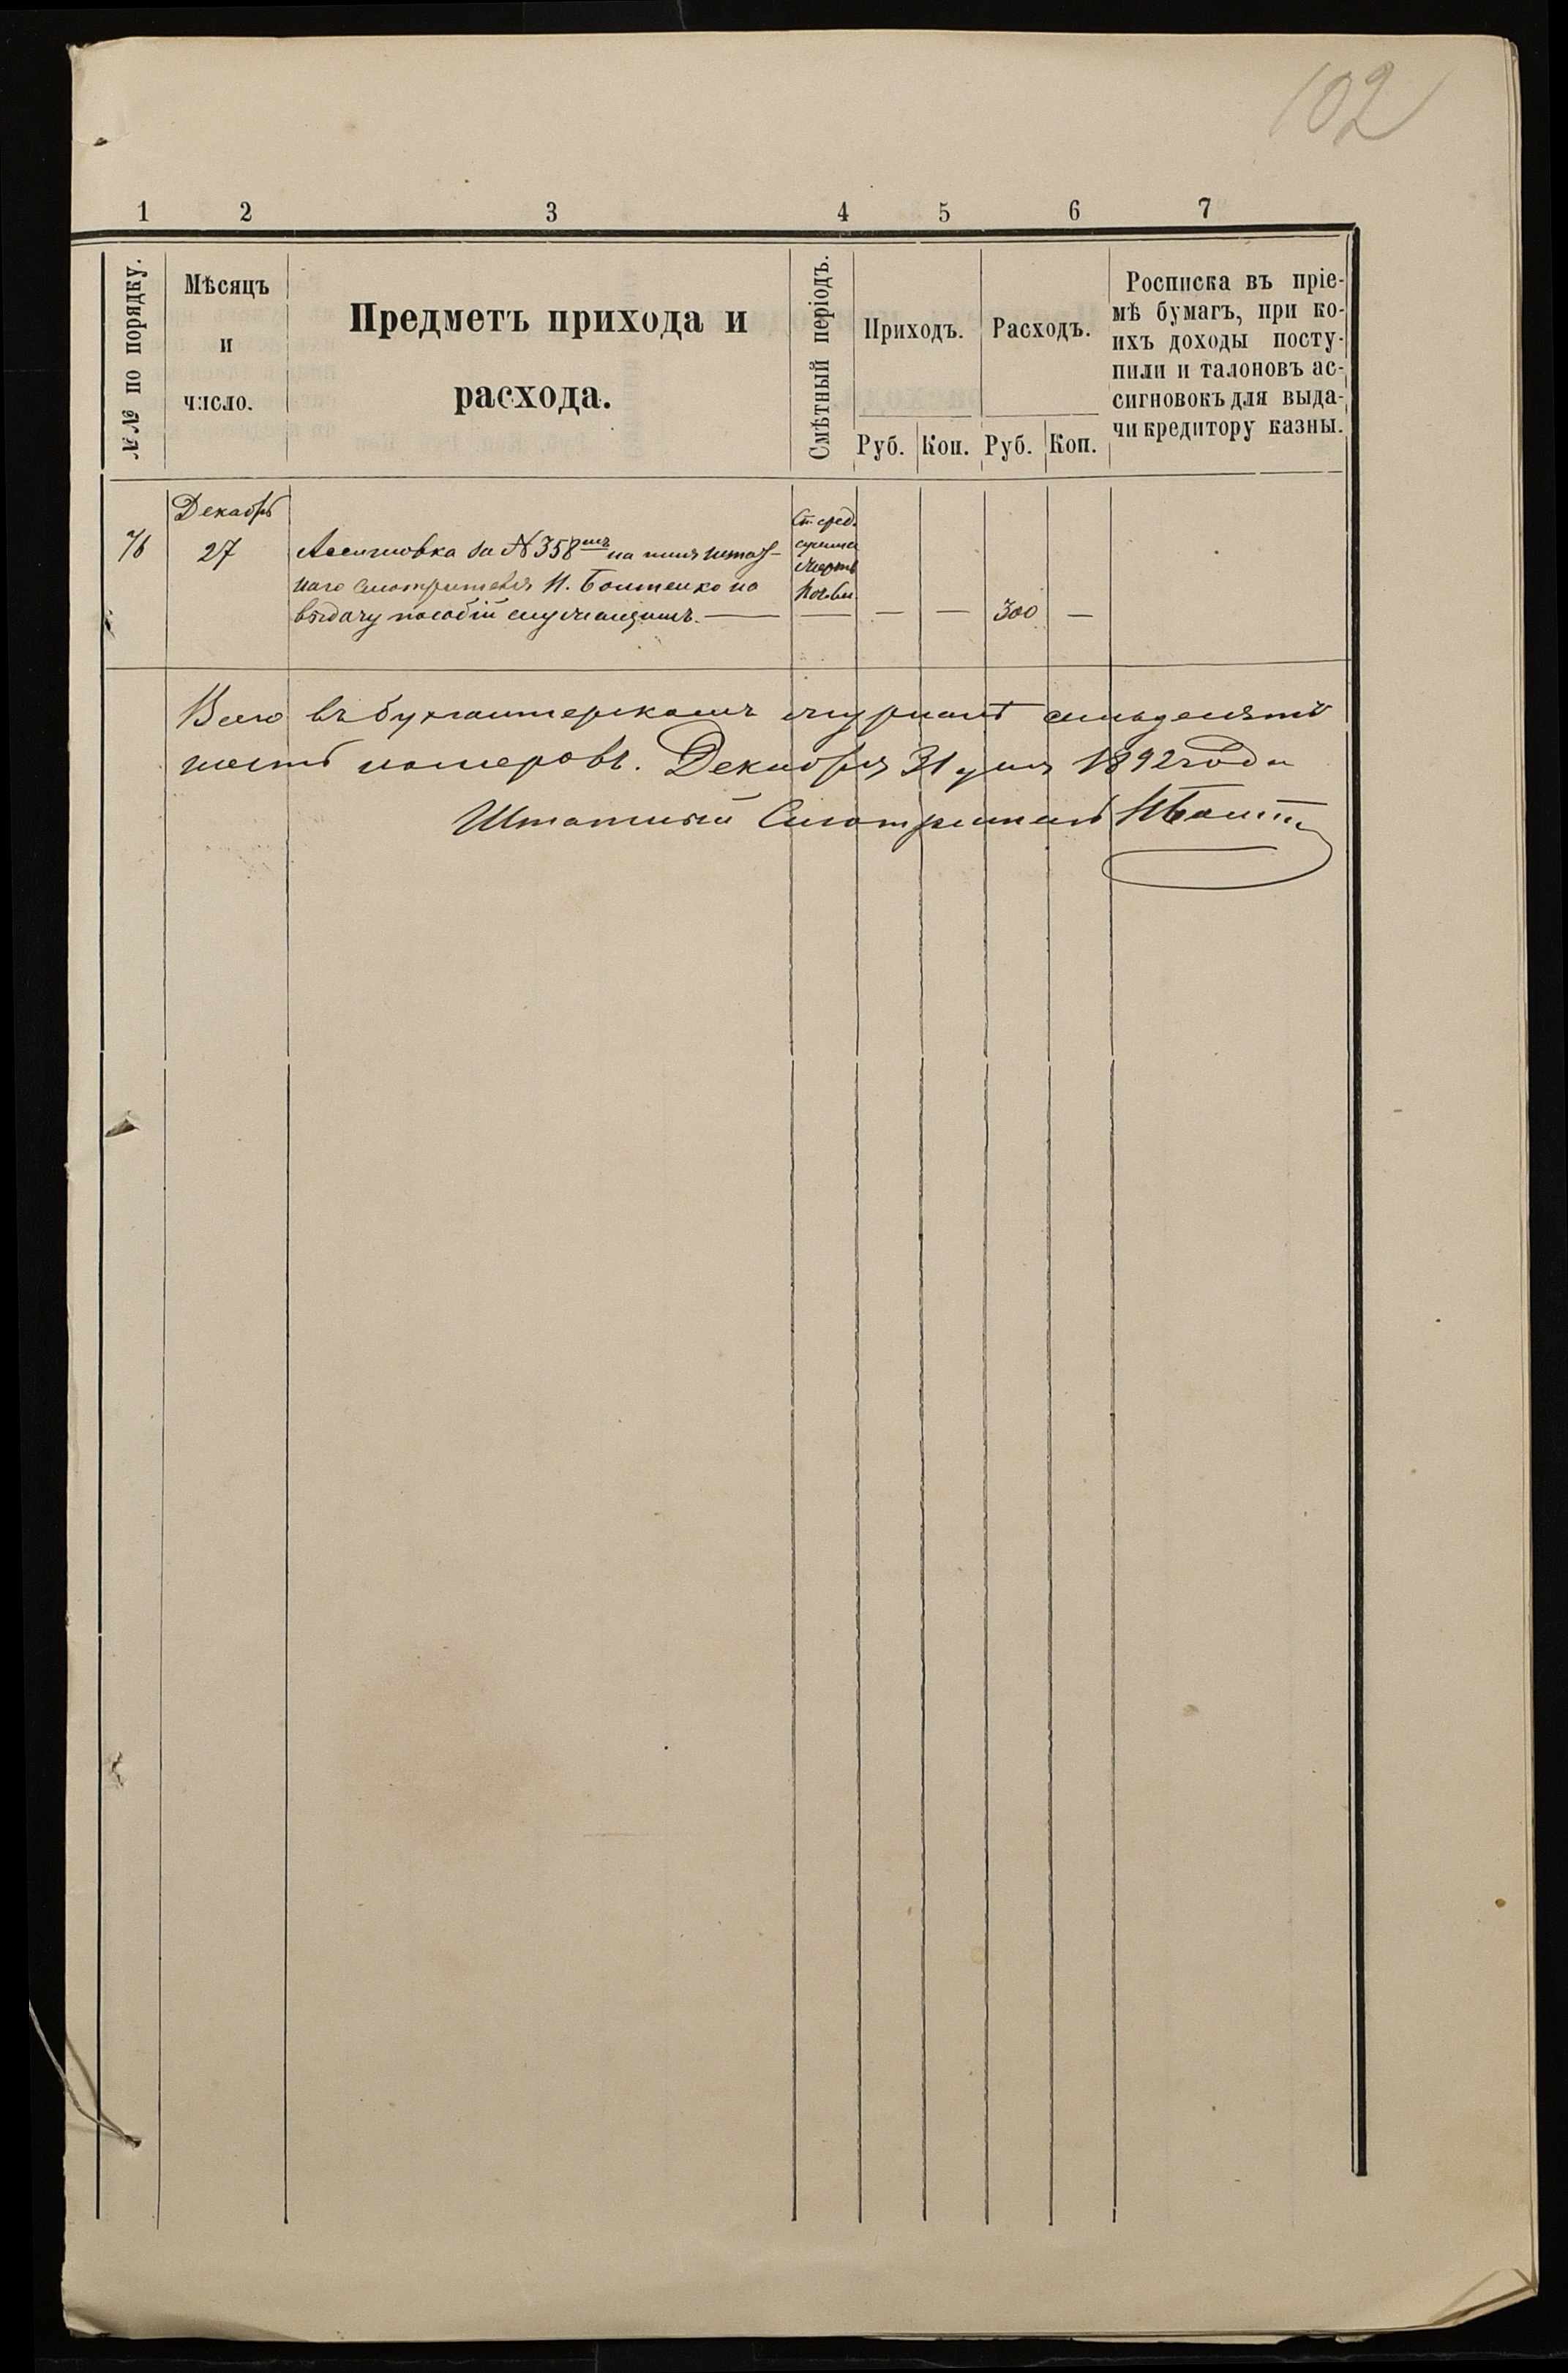 102
1 2 3 4 5 6 7
№№ по порядку.
Мѣсяцъ
и
число.
Предметъ прихода и
расхода.
Смѣтный періодъ.
Приходъ.
Расходъ.
Руб. Коп. Руб. Коп.
Росписка въ пріе-
мѣ бумагъ, при ко-
ихъ доходы посту-
пили и талоновъ ас-
сигновокъ для выда-
чи кредитору казны.
Декабрь
76 27 Ассигновка за № 358мъ на имя штат-
наго смотрителя И. Боштенко на
выдачу пособій служащимъ. — — — — 300 —
Всего въ бухгалтерскомъ журналѣ семьдесятъ
шесть номеровъ. Декабря 31 дня 1892 года
Штатный Смотритель